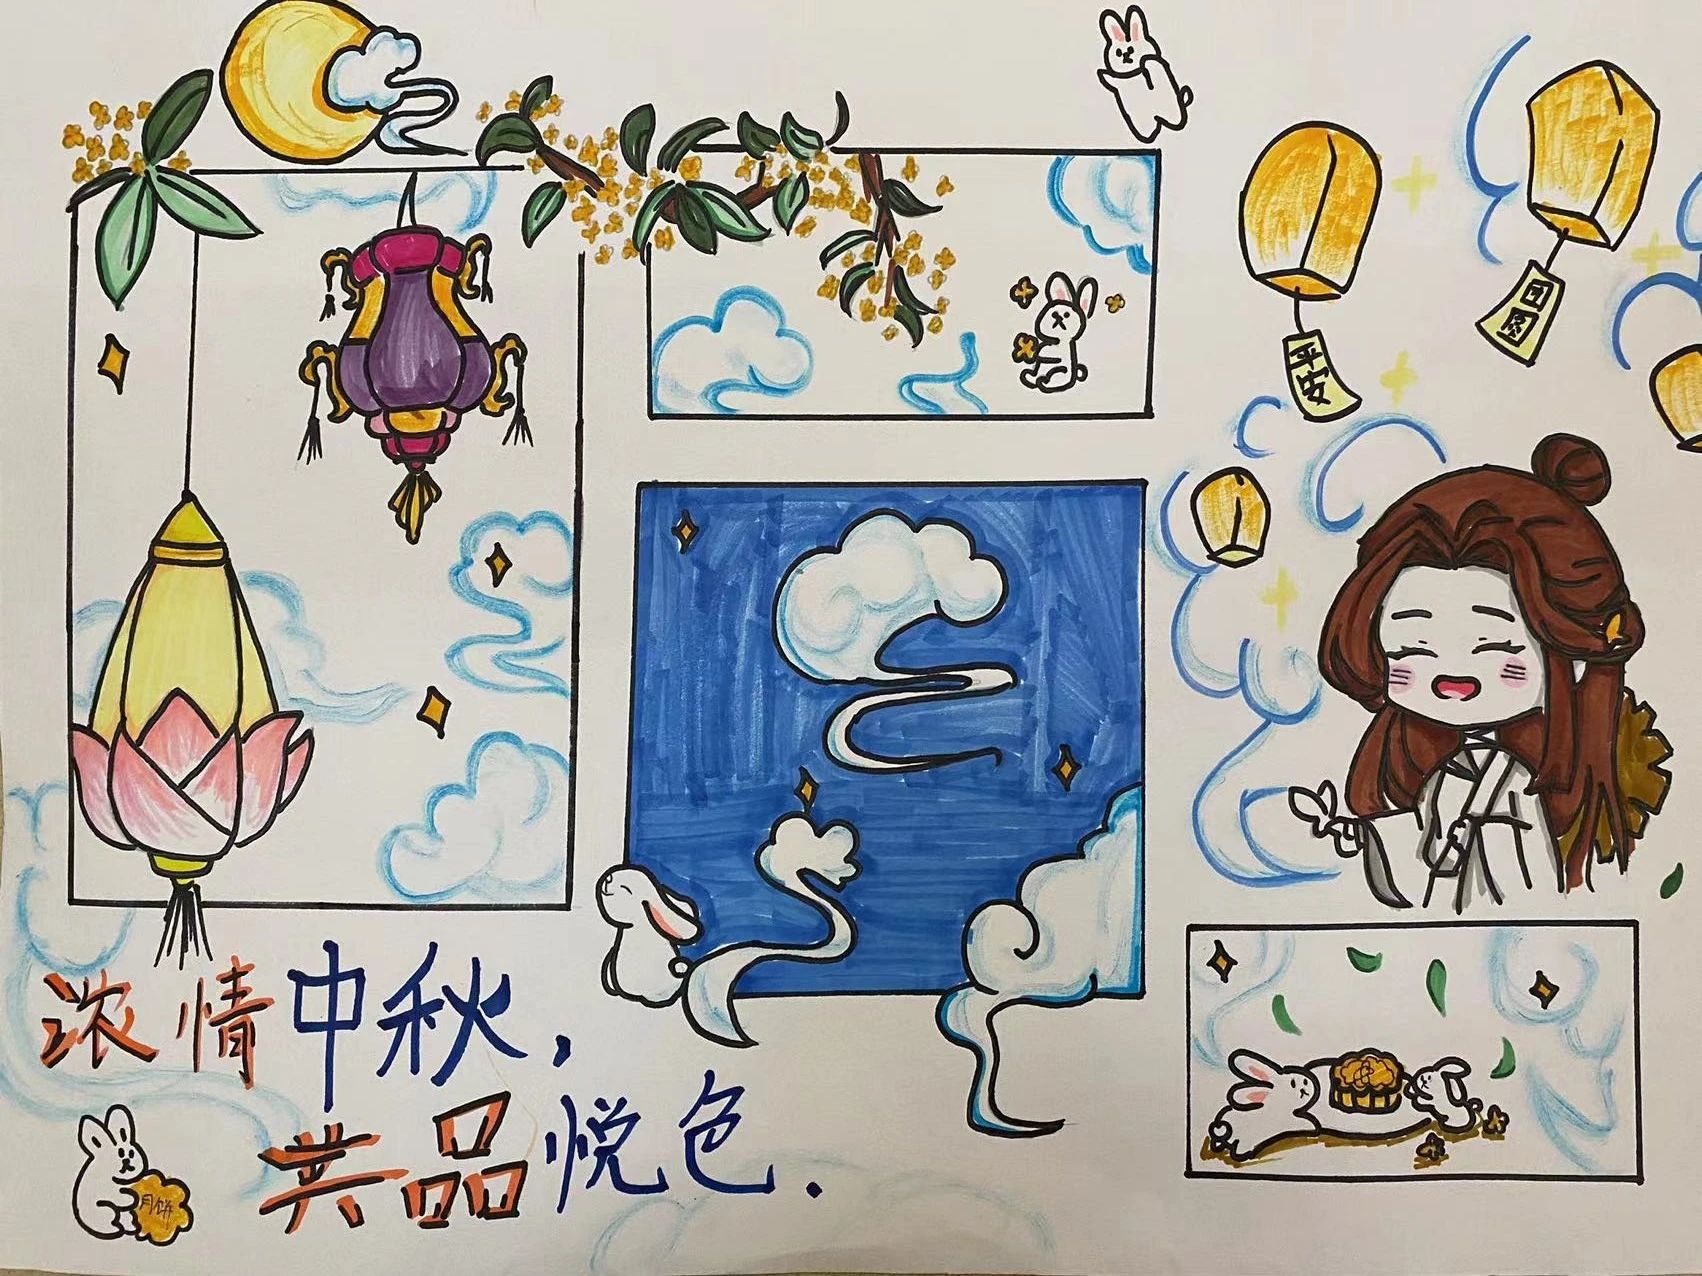 团圆
平安
浓情中秋，
共品悦色.
月饼